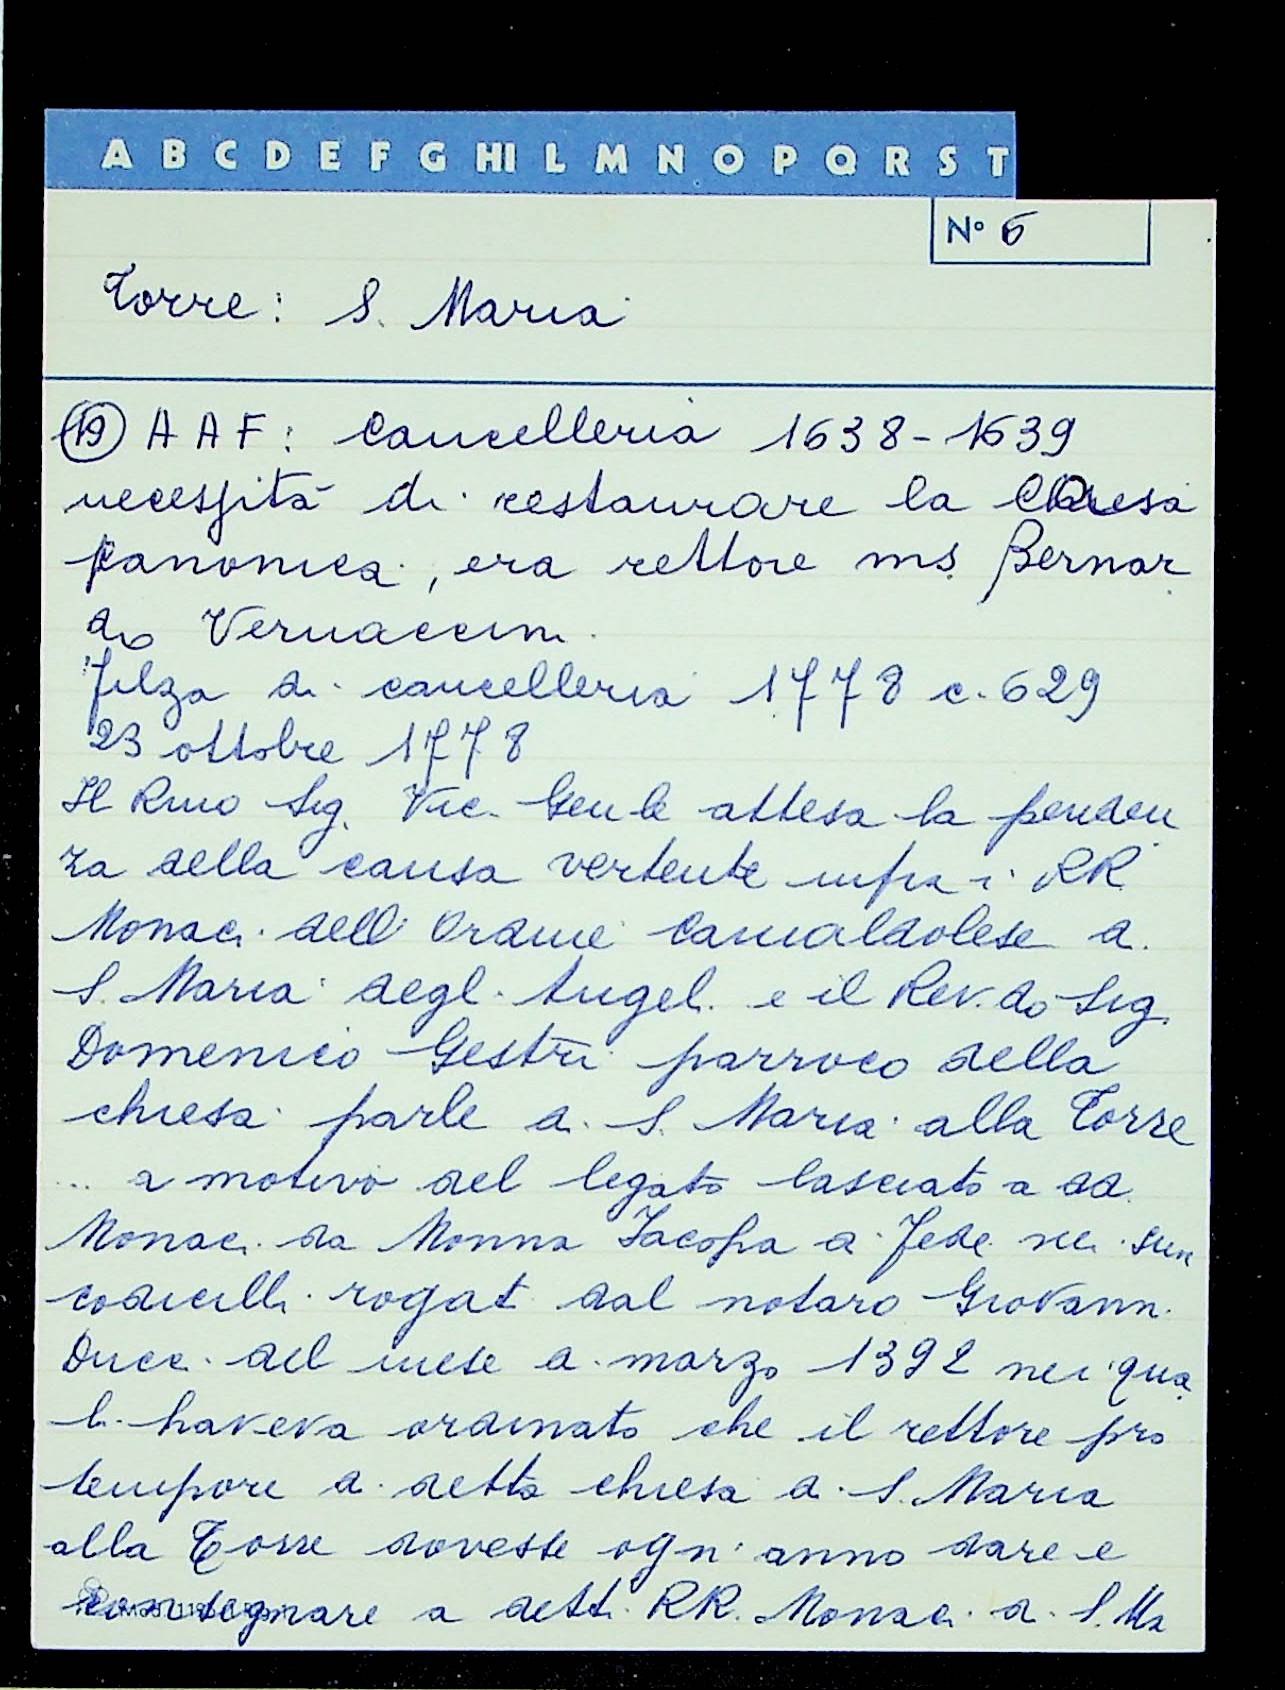 A B C D E F G HI L M N O P Q R S T
N° 6
Torre: S. Maria
19 A A F: Cancelleria 1638-1639
necessità di restaurare la Chiesa
canonica, era rettore ms. Bernar
do Vernaccini
Filza di cancelleria 1778 c. 629
23 ottobre 1778
Il Rmo Sig. Vic. Gen.le attesa la penden
za della causa vertente infra i RR.
Monaci dell'Ordine Camaldolese di
S. Maria degl. Angeli e il Rev.do Sig.
Domenico Gestri parroco della
chiesa parle di S. Maria alla Torre
... a motivo del legato lasciato a dd.
Monaci da Monna Jacopa di Fede nei suoi
codicilli rogati dal notaro Giovanni
Ducci del mese di marzo 1392 nei qua
li haveva ordinato che il rettore pro
tempore di detta chiesa di S. Maria
alla Torre dovesse ogni anno dare e
consegnare a detti RR. Monaci di S. Ma